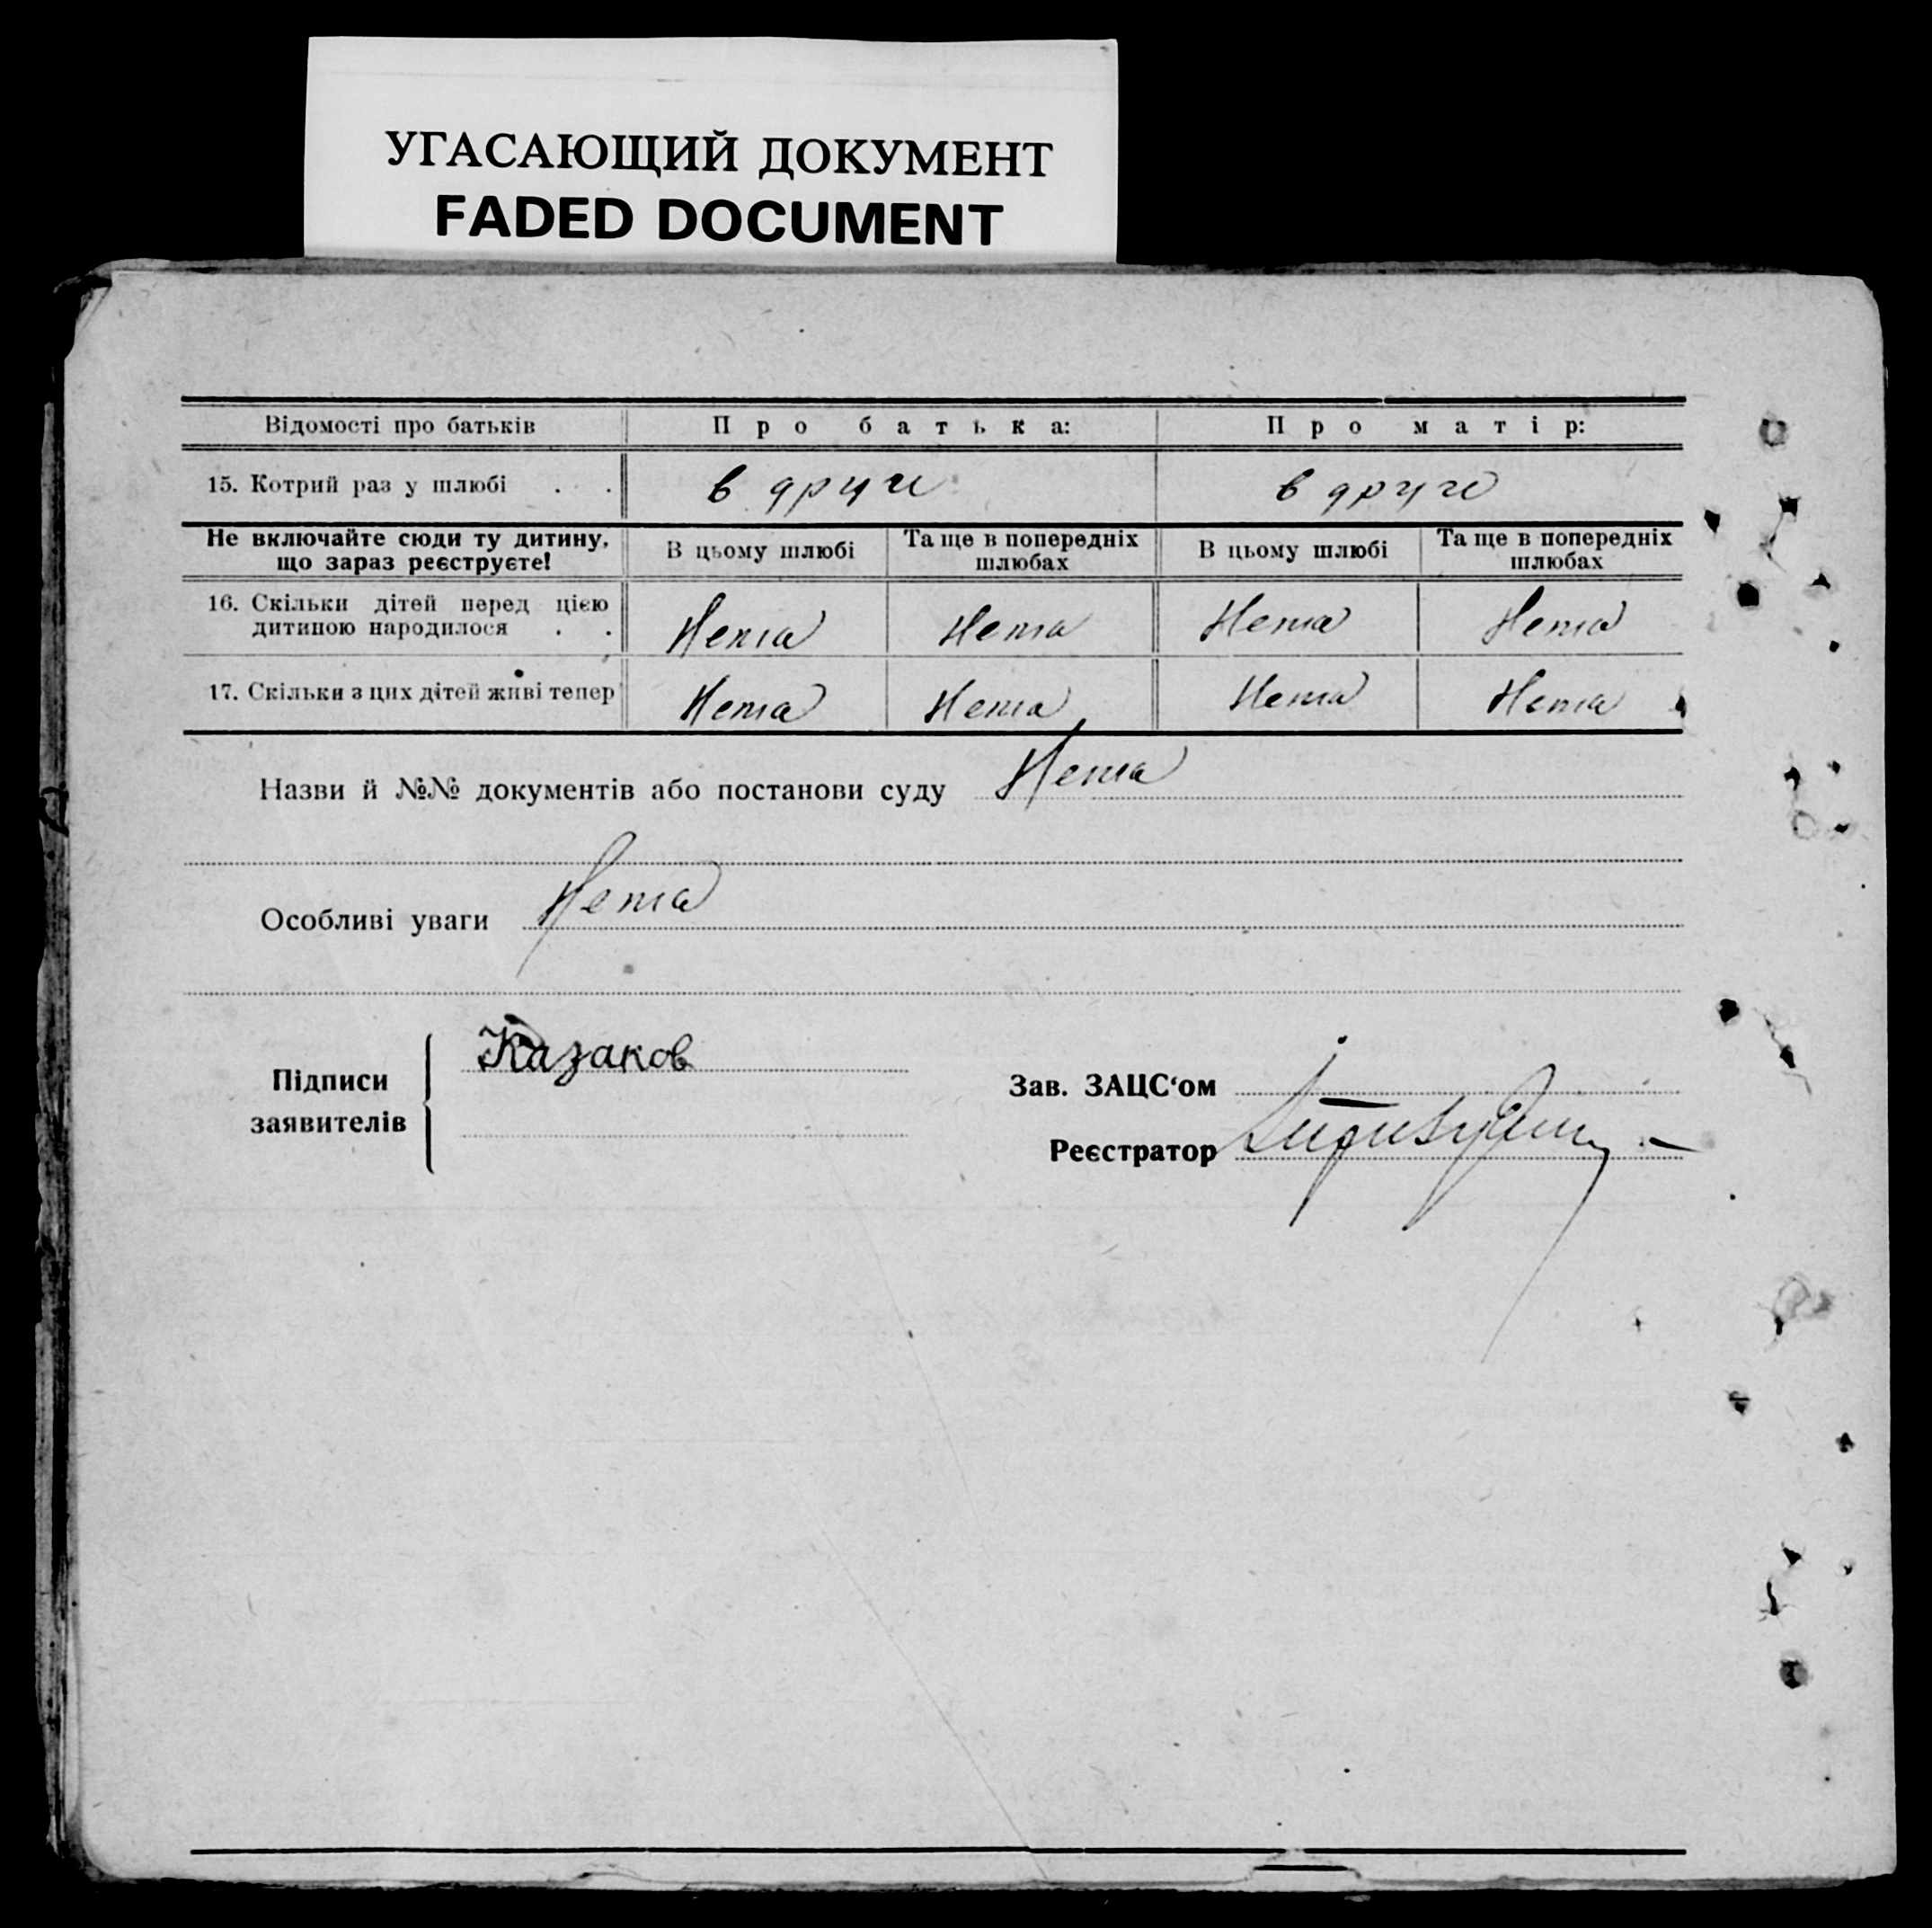 УГАСАЮЩИЙ ДОКУМЕНТ
FADED DOCUMENT
Відомості про батьків
Про батька:
Про матір:
15. Котрий раз у шлюбі . .
в друге
в друге
Не включайте сюди ту дитину,
що зараз реєструєте!
В цьому шлюбі
Та ще в попередніх
шлюбах
В цьому шлюбі
Та ще в попередніх
шлюбах
16. Скільки дітей перед цією
дитиною народилося . .
Нема
Нема
Нема
Нема
17. Скільки з цих дітей живі тепер
Нема
Нема
Нема
Нема
Назви й №№ документів або постанови суду Нема
Особливі уваги Нема
Підписи
заявителів
Казаков
Зав. ЗАЦС‘ом
Реєстратор